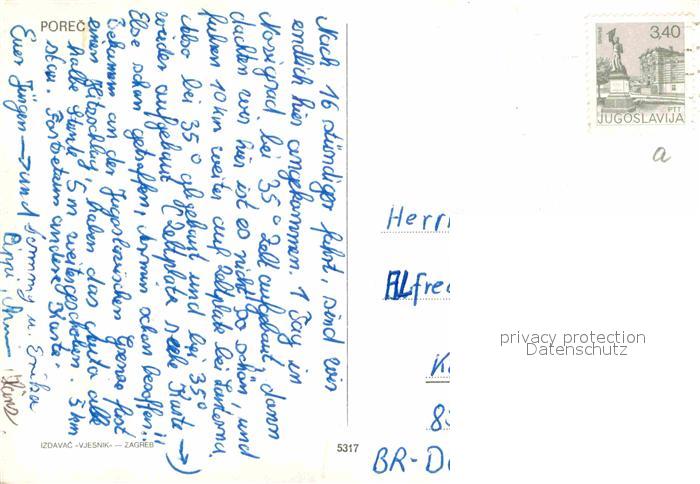 POREČ
Nach 16 stündiger Fahrt, sind wir
endlich hier angekommen. 1 Tag in
Novigrad bei 35° Zelt aufgebaut, dann
dachten wir hier ist es nicht so schön, und
fuhren 10 km weiter auf Zeltplatz bei Lanterna
Also bei 35° abgebaut und bei 35°
wieder aufgebaut (Zeltplatz siehe Karte →)
Else schon getroffen, Armin schon besoffen!!
Bekamen an der Jugoslawischen Grenze fast
einen Hitzschlag, haben das Auto alle
halbe Stunde 5 m weitergeschoben. 3 km
Stau. Fortsetzung andere Karte.
Euer Jürgen → und Tommy u. Erika
Pippi,
Hans.
IZDAVAČ »VJESNIK« — ZAGREB
5317
3,40
PTT
JUGOSLAVIJA
a
Herrn
Alfred
K
8
BR-D
privacy protection
Datenschutz